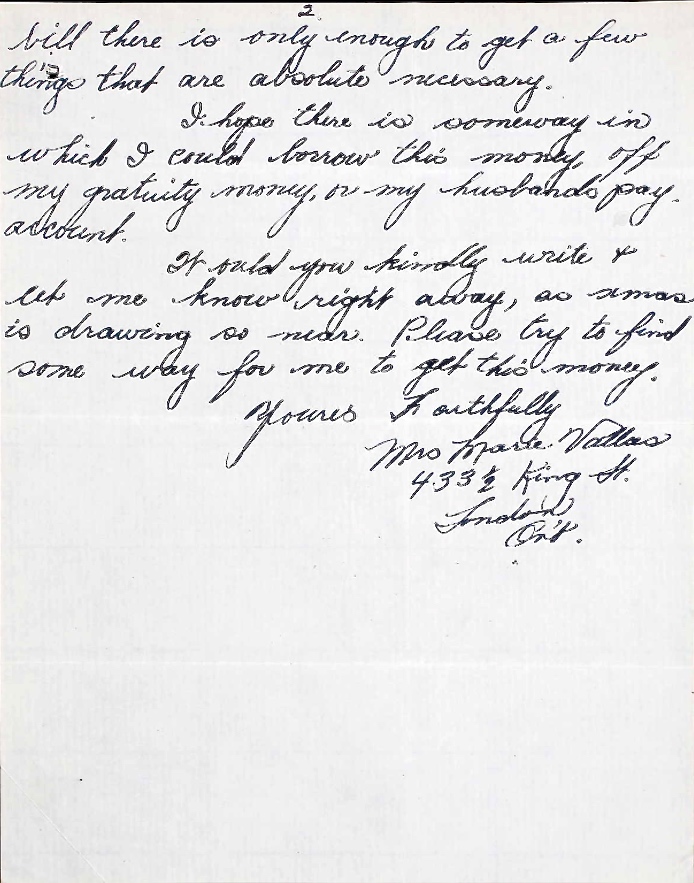 2.
bill there is only enough to get a few
things that are absolute necessary.
I hope there is someway in
which I could borrow this money, off
my gratuity money, or my husbands pay.
account.
Would you kindly write &
let me know right away, as xmas
is drawing so near. Please try to find
some way for me to get this money.
Youres Faithfully
Mrs Marie Vallas
433 1/2 King St.
London
Ont.